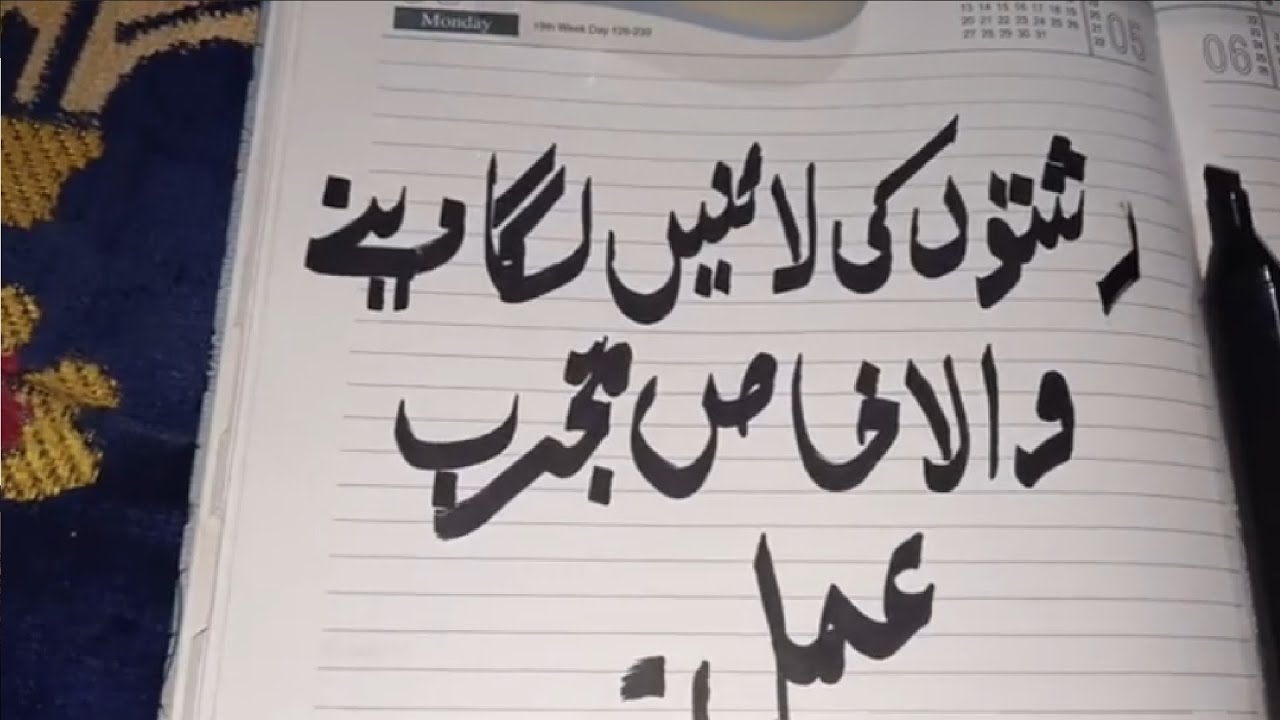 Monday
19th Week Day 126-239
13 14 15 16 17 18 19
20 21 22 23 24 25 26
27 28 29 30 31
05
06
رشتوں کی لائنیں لگا دینے
والا خاص مجرب
عمل۔